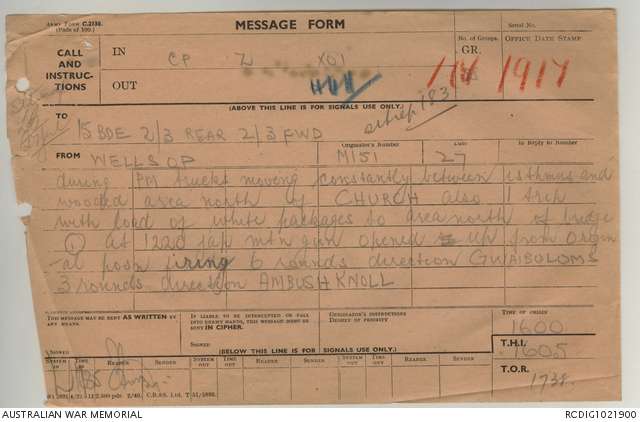 ARMY FORM C.2138.
(Pads of 100.)
MESSAGE FORM
Serial No.
CALL AND INSTRUCTIONS
IN
CP Z XO1
No. of Groups.
GR.
OFFICE DATE STAMP
OUT
1917
(ABOVE THIS LINE IS FOR SIGNALS USE ONLY.)
sitrep 183
TO
15 BDE 2/3 REAR 2/3 FWD
FROM
WELLS OP
Originator's Number
M151
Date
27
In Reply to Number
during PM trucks moving constantly between isthmus and
wooded area north of CHURCH also 1 trck
with load of white packages to area north of bridge
(1) at 1220 jap mtn gun opened up from origin
al posn firing 6 rounds direction GUAIBOLOMS
3 rounds direction AMBUSH KNOLL
THIS MESSAGE MAY BE SENT AS WRITTEN BY ANY MEANS.
IF LIABLE TO BE INTERCEPTED OR FALL INTO ENEMY HANDS, THIS MESSAGE MUST BE SENT IN CIPHER.
ORIGINATOR'S INSTRUCTIONS
DEGREE OF PRIORITY
TIME OF ORIGIN
1600
SIGNED
SIGNED
(BELOW THIS LINE IS FOR SIGNALS USE ONLY.)
T.H.I.
1605
SYSTEM OUT
TIME IN
READER
SENDER
SYSTEM OUT
TIME OUT
READER
SENDER
SYSTEM OUT
TIME OUT
READER
SENDER
T.O.R.
1738
AUSTRALIAN WAR MEMORIAL
RCDIG1021900